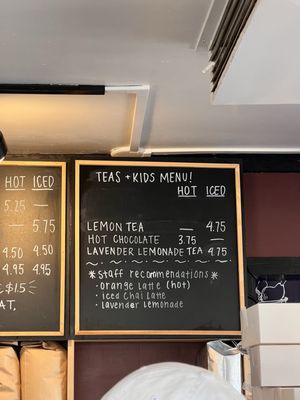 HOT ICED
5.25 —
— 5.75
4.50 4.50
4.95 4.95
TEAS + KIDS MENU!
HOT ICED
LEMON TEA — 4.75
HOT CHOCOLATE 3.75 —
LAVENDER LEMONADE TEA 4.75
*STAFF RECOMMENDATIONS*
• orange latte (hot)
• iced chai latte
• lavender lemonade